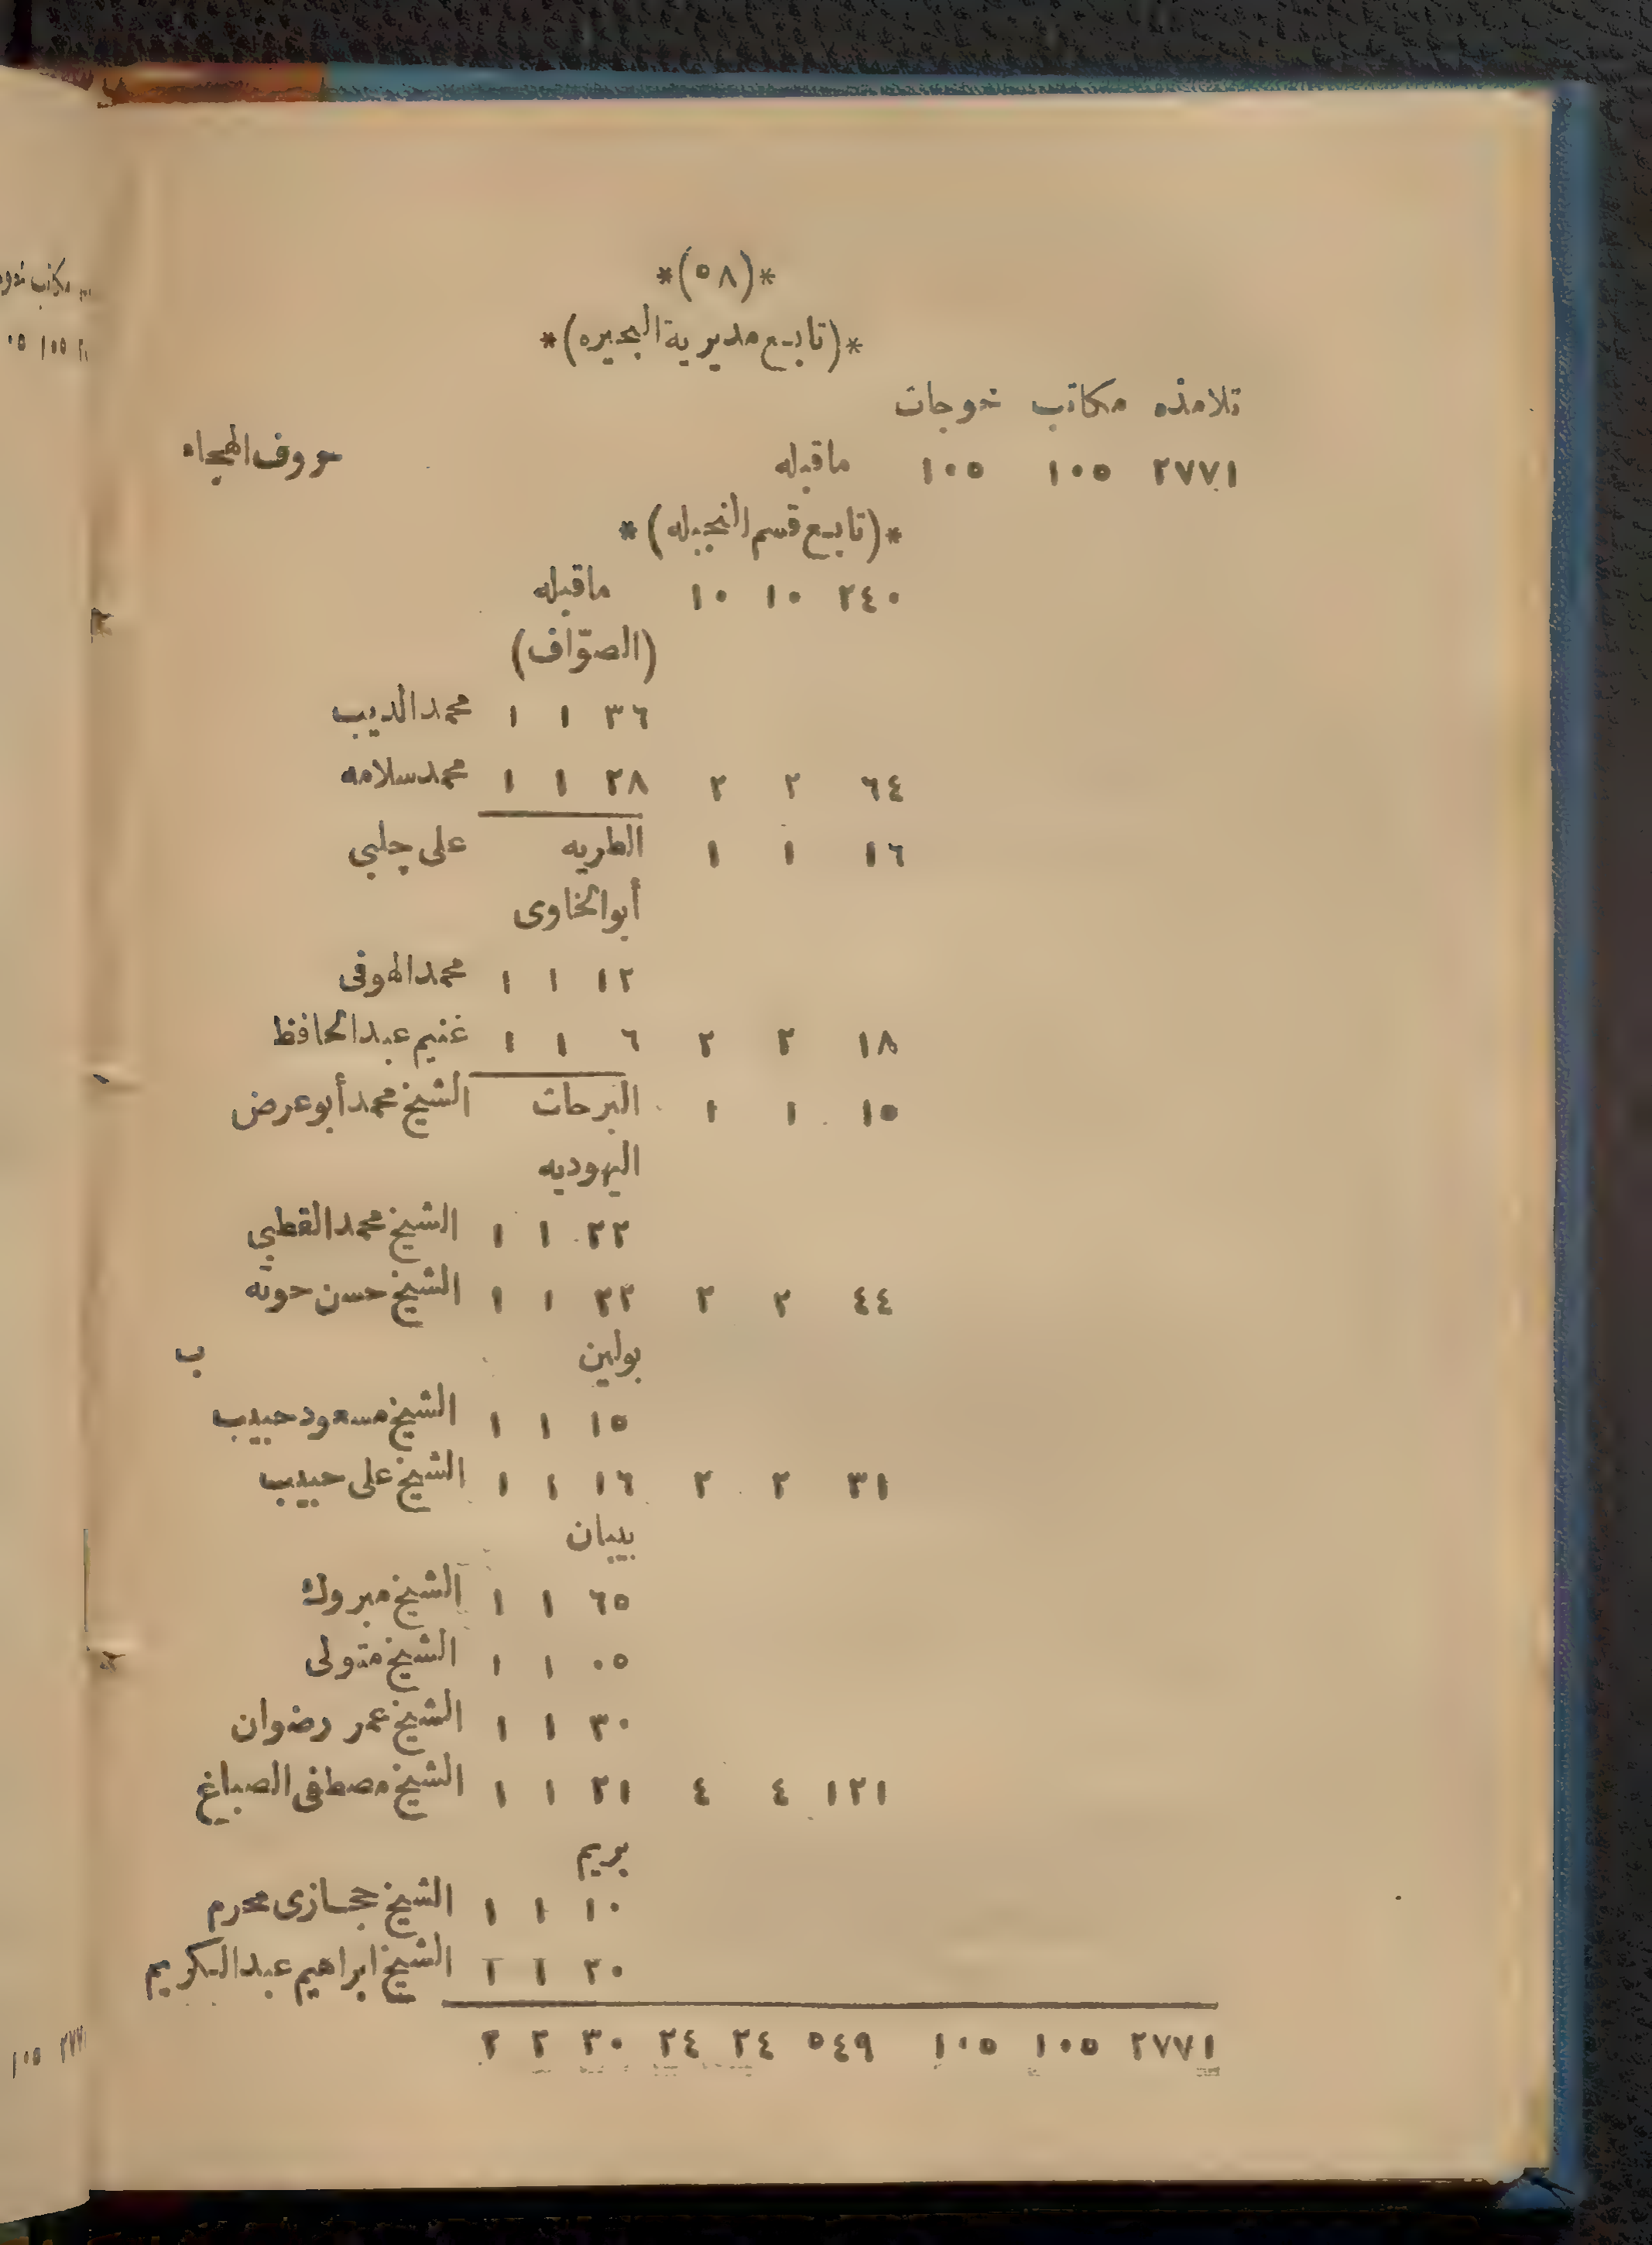 *(٥٨)*
*(تابع مديرية البحيره)*
تلامذه مكاتب خوجات
٢٧٧١ ١٠٥ ١٠٥ ماقبله حروف الهجاء
*(تابع قسم النجيله)*
٢٤٠ ١٠ ١٠ ماقبله
(الصوّاف)
٣٦ ١ ١ محمد الديب
٦٤ ٢ ٢ ٢٨ ١ ١ محمد سلامه
١٦ ١ ١ الطريه على چلبي
أبو الخاوى
١٢ ١ ١ محمد الهوفى
١٨ ٢ ٢ ٦ ١ ١ غنيم عبد الحافظ
١٥ ١ ١ البرحات الشيخ محمد أبو عرض
اليهوديه
٢٢ ١ ١ الشيخ محمد القطبي
٤٤ ٢ ٢ ٢٢ ١ ١ الشيخ حسن حوته
بولين ب
١٥ ١ ١ الشيخ مسعود حبيب
٣١ ٢ ٢ ١٦ ١ ١ الشيخ على حبيب
بيبان
٦٥ ١ ١ الشيخ مبروك
٠٥ ١ ١ الشيخ متولى
٣٠ ١ ١ الشيخ عمر رضوان
١٢١ ٤ ٤ ٢١ ١ ١ الشيخ مصطفى الصباغ
بريم
١٠ ١ ١ الشيخ حجازى محرم
٢٠ ١ ١ الشيخ ابراهيم عبد الكريم
٢٧٧١ ١٠٥ ١٠٥ ٥٤٩ ٢٤ ٢٤ ٣٠ ٢ ٢